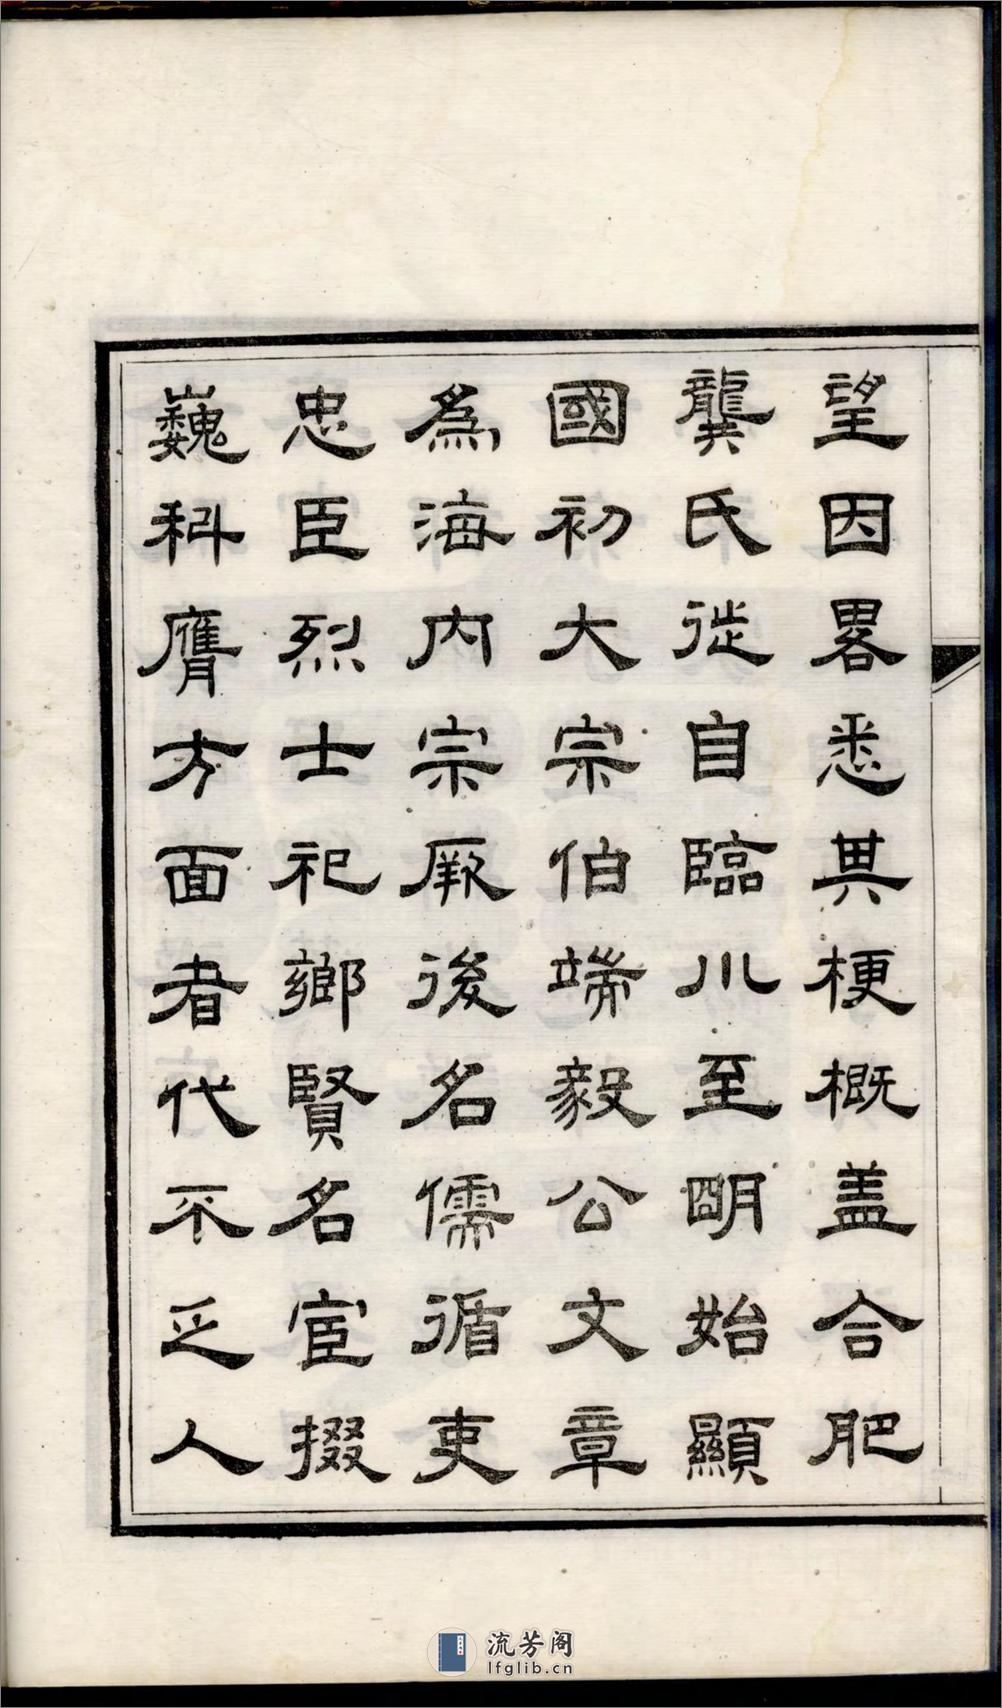 望因畧悉其梗概盖合肥
龔氏徙自臨川至明始顯
國初大宗伯端毅公文章
為海内宗厥後名儒循吏
忠臣烈士祀鄉賢名宦掇
巍科膺方面者代不乏人
流芳阁
lfglib.cn